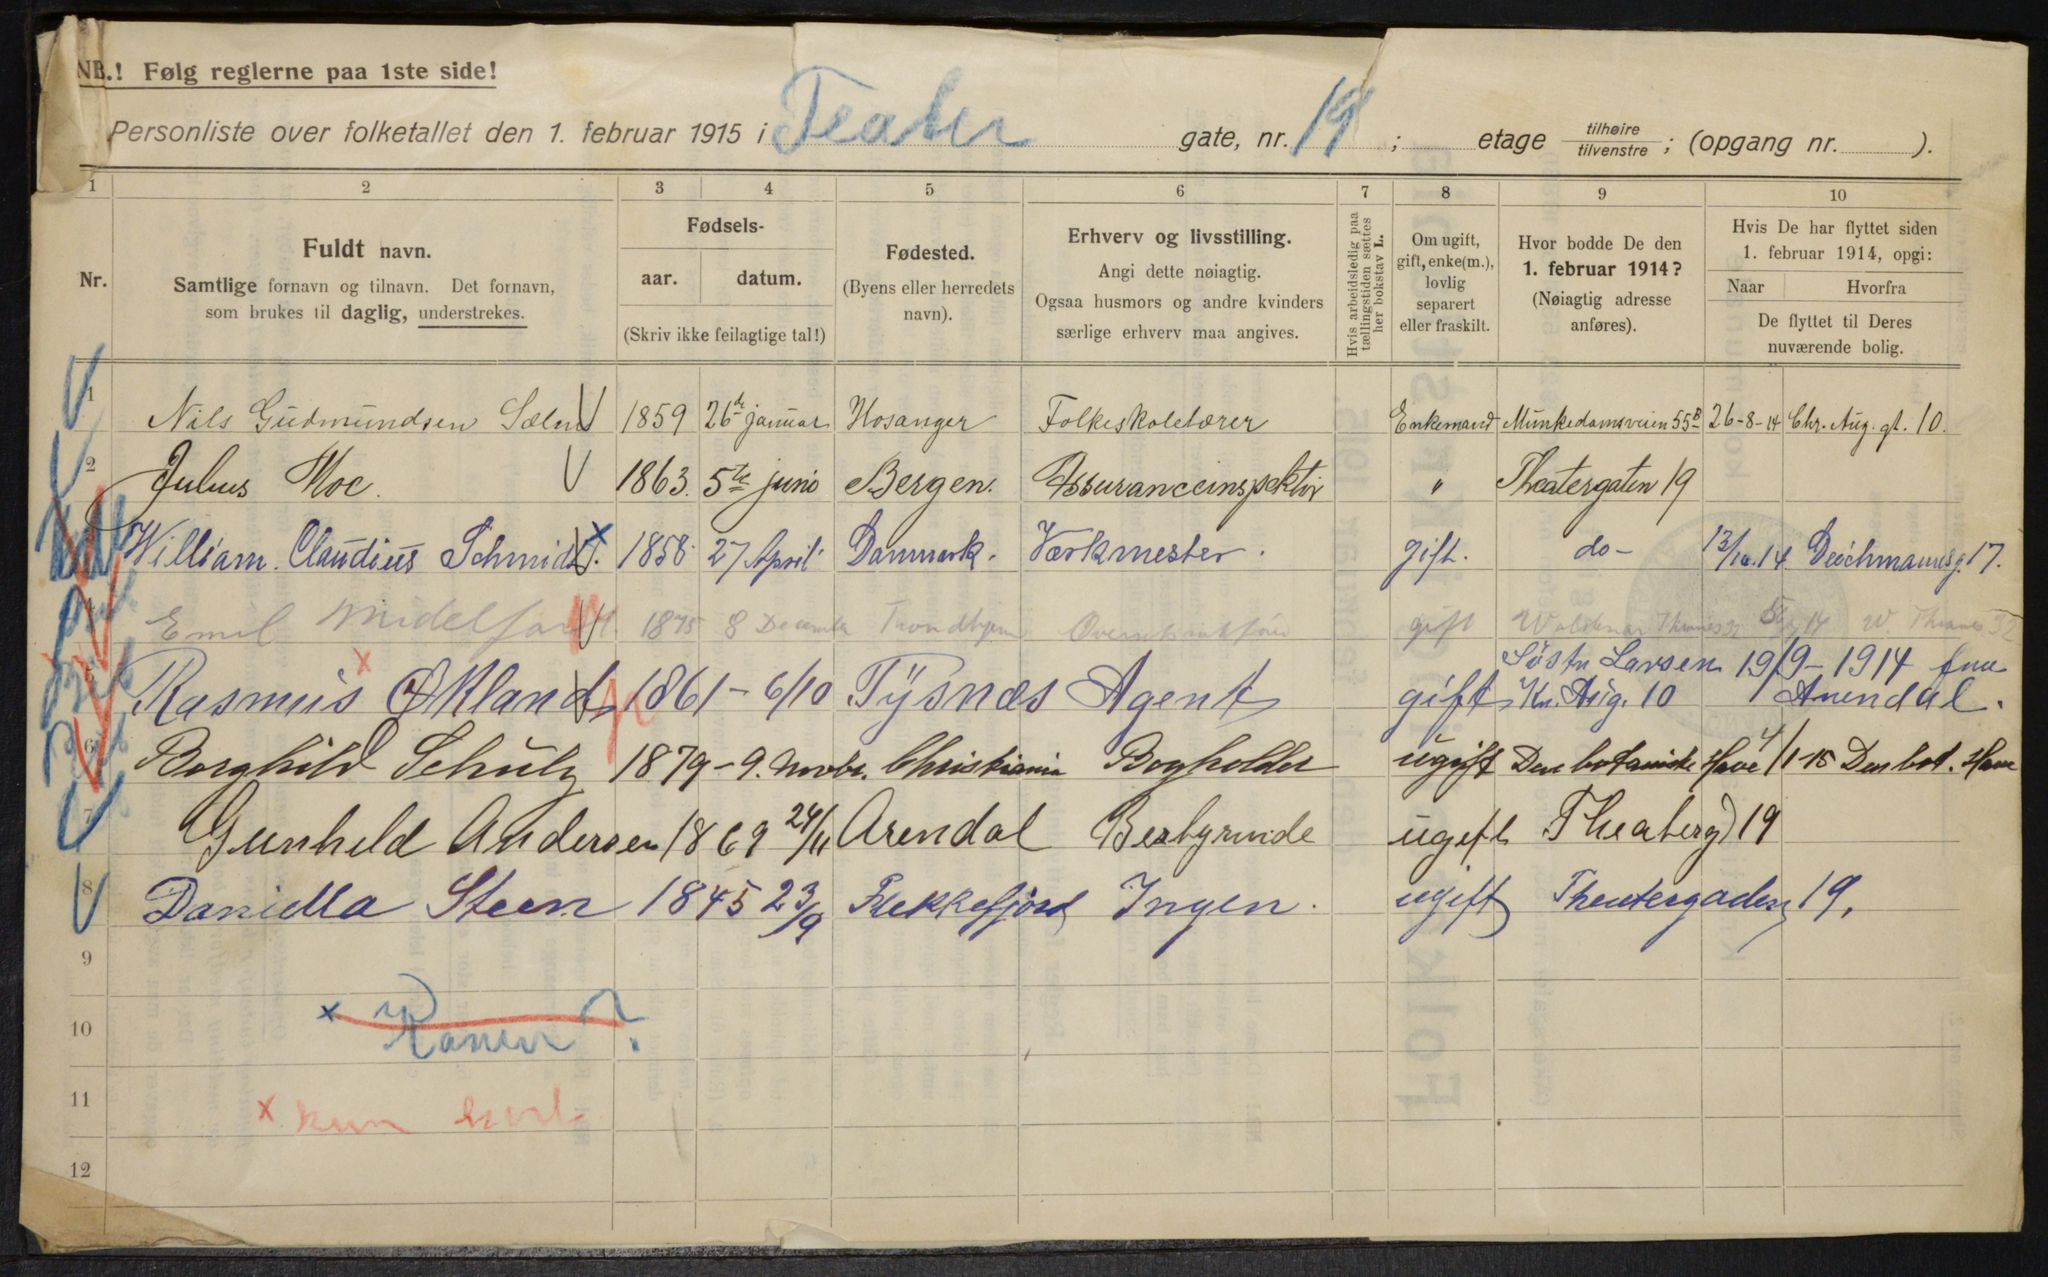 NB.! Følg reglerne paa 1ste side!
Personliste over folketallet den 1. februar 1915 i Teater gate, nr. 19; etage tilhøire tilvenstre; (opgang nr. ).
1 2 3 4 5 6 7 8 9 10
Nr.
Fuldt navn.
Samtlige fornavn og tilnavn. Det fornavn,
som brukes til daglig, understrekes.
Fødsels-
aar. datum.
(Skriv ikke feilagtige tal!)
Fødested.
(Byens eller herredets
navn).
Erhverv og livsstilling.
Angi dette nøiagtig.
Ogsaa husmors og andre kvinders
særlige erhverv maa angives.
Hvis arbeidsledig paa
tællingstiden sættes
her bokstav L.
Om ugift,
gift, enke(m.),
lovlig
separert
eller fraskilt.
Hvor bodde De den
1. februar 1914?
(Nøiagtig adresse
anføres).
Hvis De har flyttet siden
1. februar 1914, opgi:
Naar Hvorfra
De flyttet til Deres
nuværende bolig.
1 Nils Gudmundsen Sælen 1859 26de januar Hosanger Folkeskolelærer Enkemand Munkedamsveien 55B 26-8-14 Chr. Aug. gt. 10.
2 Julius Moe. 1863. 5te juni Bergen. Assuranceinspektør " Theatergaten 19
William Claudius Schmidt. 1858 27 April Danmark. Værkmester. gift. do- 13/10.14 Deichmannsg. 17.
4 Emil Midelfart 1875 8 December Trondhjem gift 14 W. Thranes 32
Rasmus Økland 1861 - 6/10 Tysnæs Agent gift Søstr. Larsen Kr. Aug. 10 19/9-1914 fra Arendal.
6 Borghild Schulz 1879 - 9. novbr. Christiania Bogholder ugift Den botaniske Have 4/1-15 Den bot. Have
7 Gunhild Andersen 1869 24/11 Arendal Bestyrinde ugift Theaterg 19
8 Daniella Steen 1845 23/9 Flekkefjord Ingen. ugift Theatergaden 19.
9
10 x ?
11 x kun kort
12